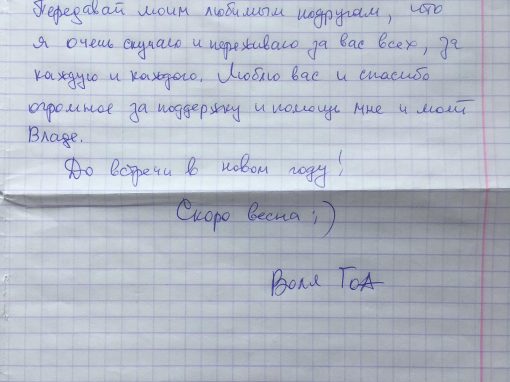 Передавай моим любимым подругам, что
я очень скучаю и переживаю за вас всех, за
каждую и каждого. Люблю вас и спасибо
огромное за поддержку и помощь мне и моей
Владе.
До встречи в новом году!
Скоро весна ;)
Воля ТоА